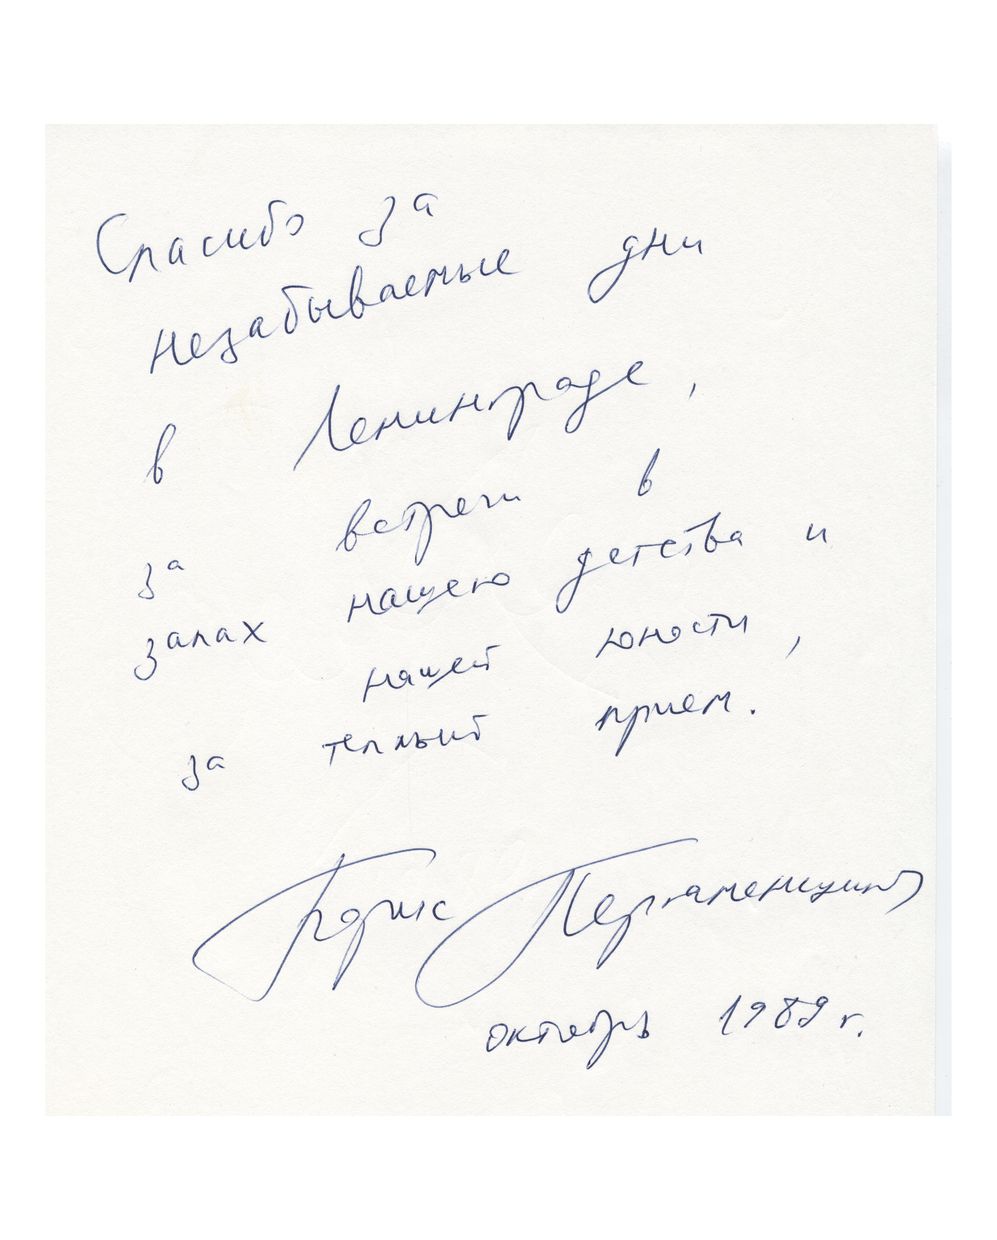 Спасибо за
незабываемые дни
в Ленинграде,
за встречи в
залах нашего детства и
нашей юности,
за теплый прием.
Борис Пергаменщиков
октябрь 1989 г.